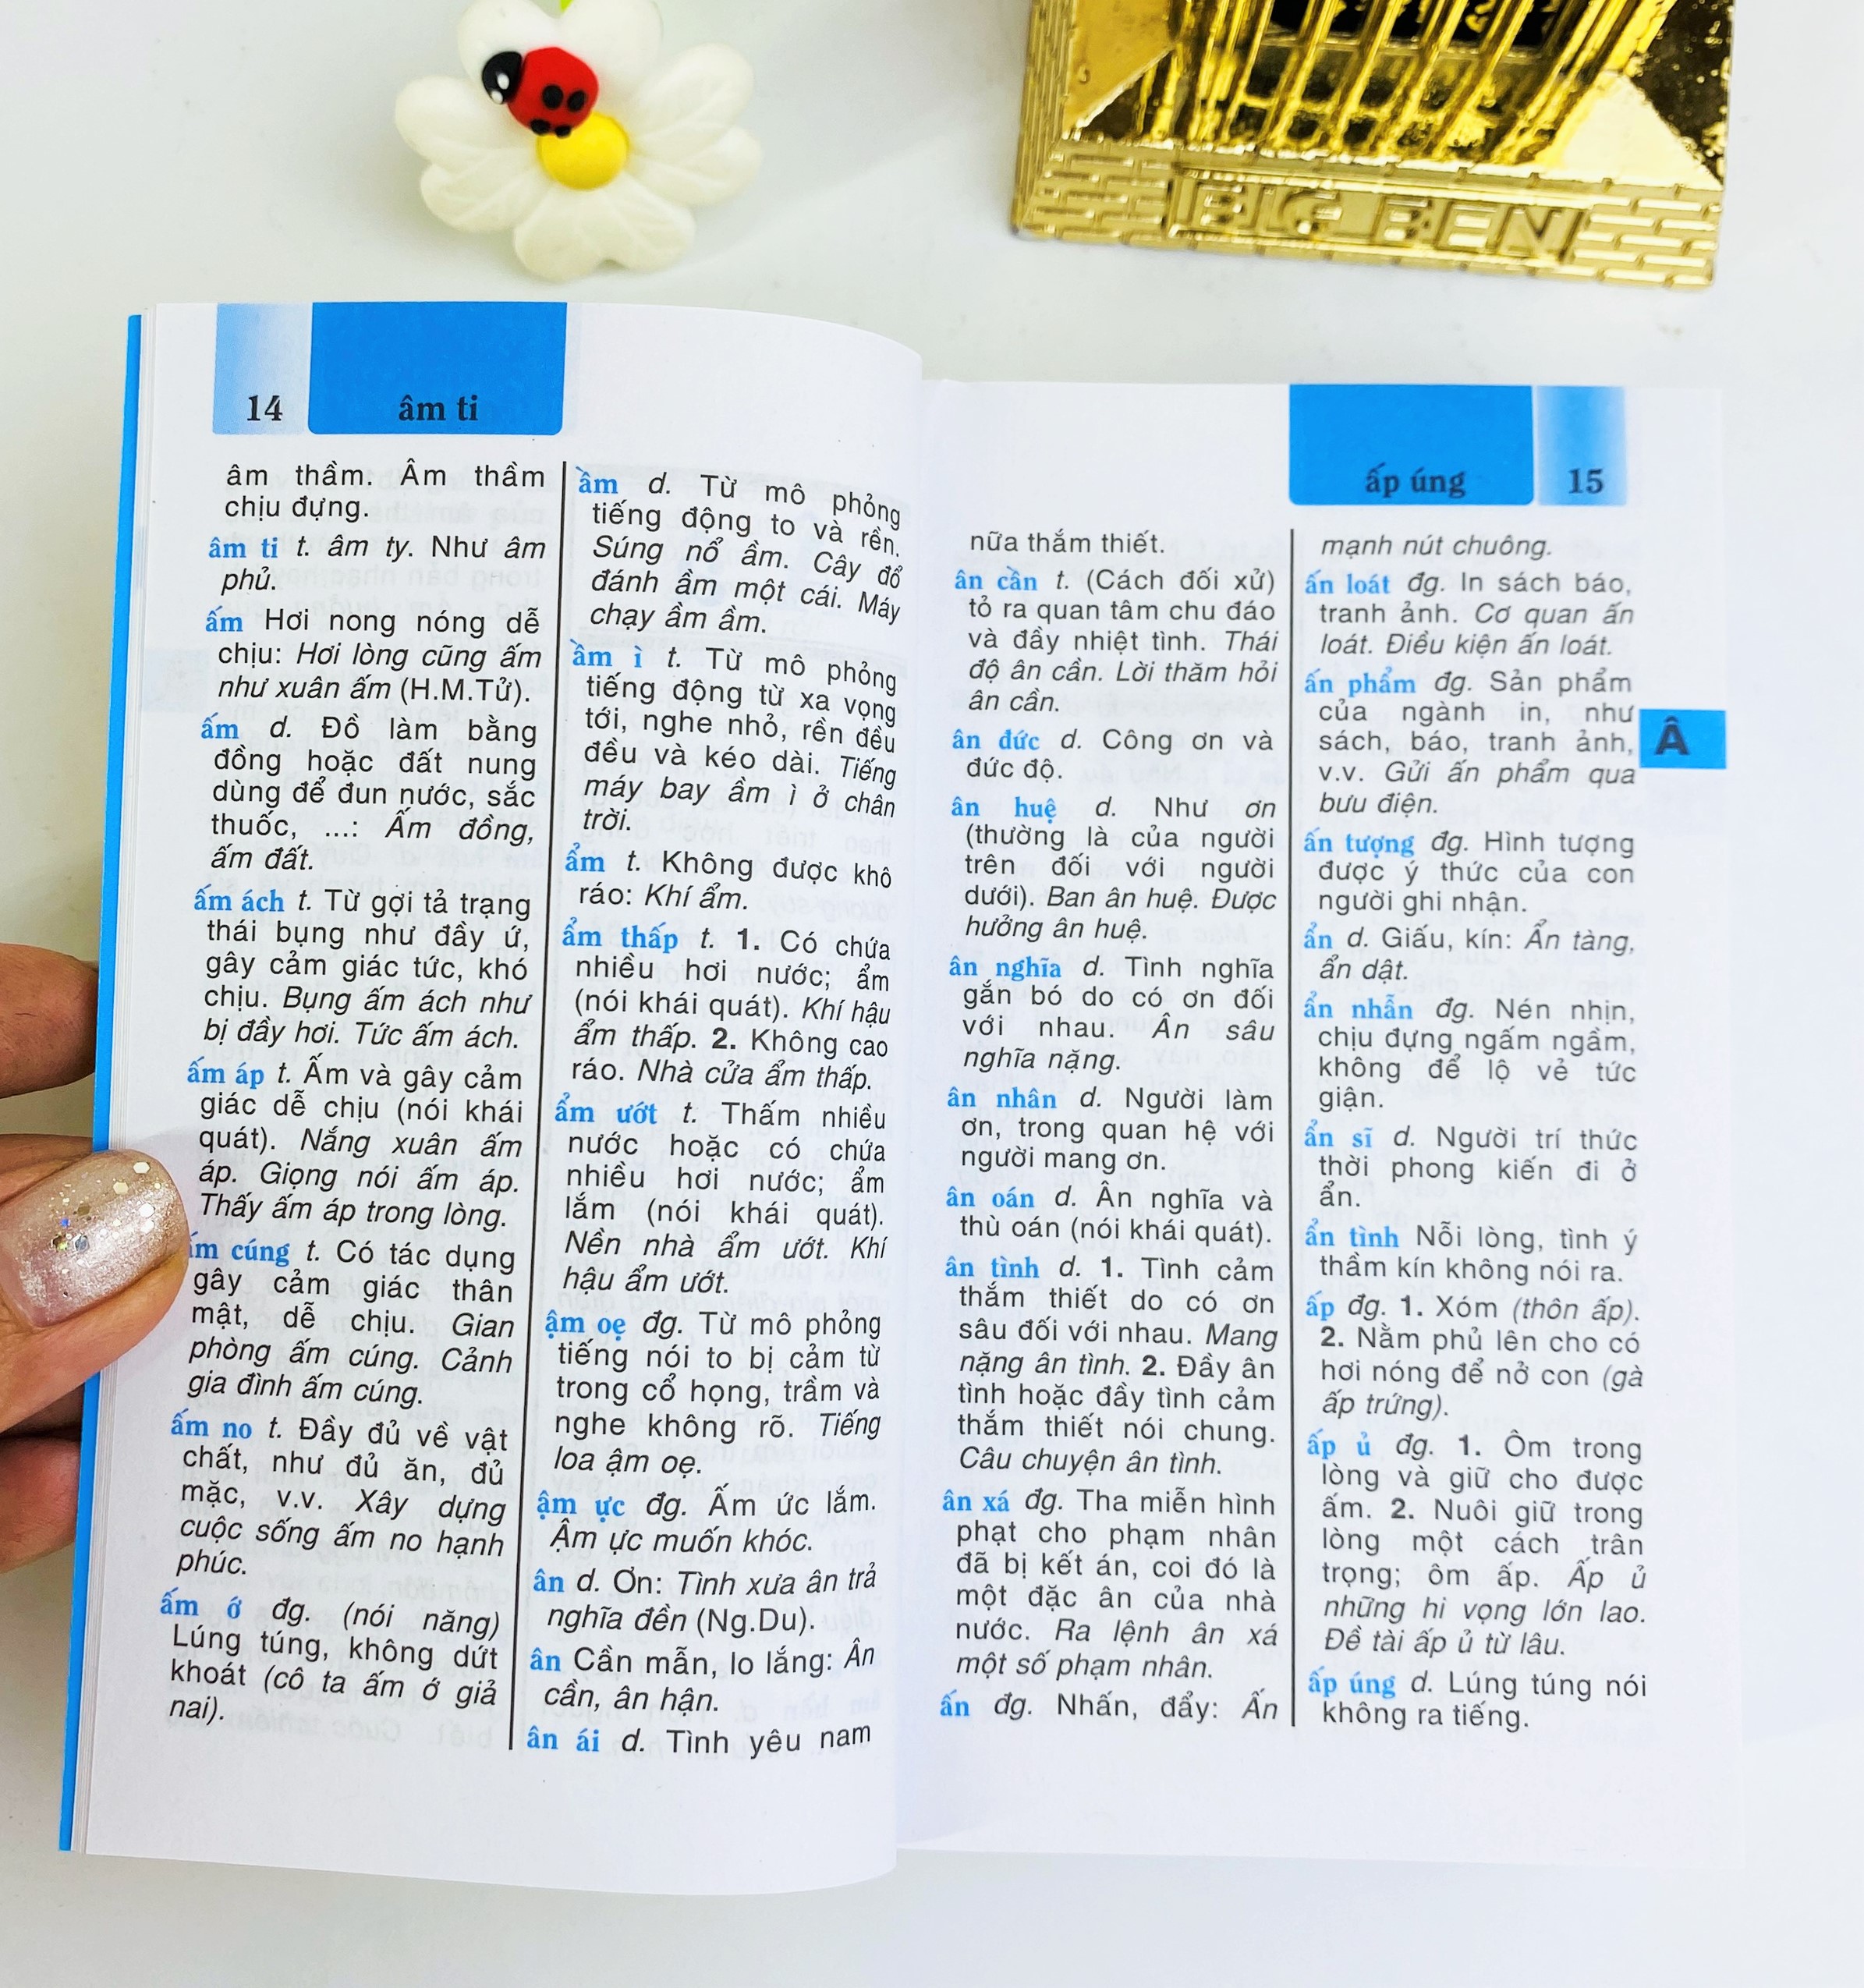 BIG BEN
14
âm ti
âm thầm. Âm thầm
chịu đựng.
âm ti t. âm ty. Như âm
phủ.
ấm Hơi nong nóng dễ
chịu: Hơi lòng cũng ấm
như xuân ấm (H.M.Tử).
ấm d. Đồ làm bằng
đồng hoặc đất nung
dùng để đun nước, sắc
thuốc, ...: Ấm đồng,
ấm đất.
ấm ách t. Từ gợi tả trạng
thái bụng như đầy ứ,
gây cảm giác tức, khó
chịu. Bụng ấm ách như
bị đầy hơi. Tức ấm ách.
ấm áp t. Ấm và gây cảm
giác dễ chịu (nói khái
quát). Nắng xuân ấm
áp. Giọng nói ấm áp.
Thấy ấm áp trong lòng.
ấm cúng t. Có tác dụng
gây cảm giác thân
mật, dễ chịu. Gian
phòng ấm cúng. Cảnh
gia đình ấm cúng.
ấm no t. Đầy đủ về vật
chất, như đủ ăn, đủ
mặc, v.v. Xây dựng
cuộc sống ấm no hạnh
phúc.
ấm ớ đg. (nói năng)
Lúng túng, không dứt
khoát (cô ta ấm ớ giả
nai).
ầm d. Từ mô phỏng
tiếng động to và rền.
Súng nổ ầm. Cây đổ
đánh ầm một cái. Máy
chạy ầm ầm.
ầm ì t. Từ mô phỏng
tiếng động từ xa vọng
tới, nghe nhỏ, rền đều
đều và kéo dài. Tiếng
máy bay ầm ì ở chân
trời.
ẩm t. Không được khô
ráo: Khí ẩm.
ẩm thấp t. 1. Có chứa
nhiều hơi nước; ẩm
(nói khái quát). Khí hậu
ẩm thấp. 2. Không cao
ráo. Nhà cửa ẩm thấp.
ẩm ướt t. Thấm nhiều
nước hoặc có chứa
nhiều hơi nước; ẩm
lắm (nói khái quát).
Nền nhà ẩm ướt. Khí
hậu ẩm ướt.
ậm oẹ đg. Từ mô phỏng
tiếng nói to bị cảm từ
trong cổ họng, trầm và
nghe không rõ. Tiếng
loa ậm oẹ.
ậm ực đg. Ấm ức lắm.
Ậm ực muốn khóc.
ân d. Ơn: Tình xưa ân trả
nghĩa đền (Ng.Du).
ân Cần mẫn, lo lắng: Ân
cần, ân hận.
ân ái d. Tình yêu nam
ấp úng
15
nữa thắm thiết.
ân cần t. (Cách đối xử)
tỏ ra quan tâm chu đáo
và đầy nhiệt tình. Thái
độ ân cần. Lời thăm hỏi
ân cần.
ân đức d. Công ơn và
đức độ.
ân huệ d. Như ơn
(thường là của người
trên đối với người
dưới). Ban ân huệ. Được
hưởng ân huệ.
ân nghĩa d. Tình nghĩa
gắn bó do có ơn đối
với nhau. Ân sâu
nghĩa nặng.
ân nhân d. Người làm
ơn, trong quan hệ với
người mang ơn.
ân oán d. Ân nghĩa và
thù oán (nói khái quát).
ân tình d. 1. Tình cảm
thắm thiết do có ơn
sâu đối với nhau. Mang
nặng ân tình. 2. Đầy ân
tình hoặc đầy tình cảm
thắm thiết nói chung.
Câu chuyện ân tình.
ân xá đg. Tha miễn hình
phạt cho phạm nhân
đã bị kết án, coi đó là
một đặc ân của nhà
nước. Ra lệnh ân xá
một số phạm nhân.
ấn đg. Nhấn, đẩy: Ấn
mạnh nút chuông.
ấn loát đg. In sách báo,
tranh ảnh. Cơ quan ấn
loát. Điều kiện ấn loát.
ấn phẩm đg. Sản phẩm
của ngành in, như
sách, báo, tranh ảnh,
v.v. Gửi ấn phẩm qua
bưu điện.
ấn tượng đg. Hình tượng
được ý thức của con
người ghi nhận.
ẩn d. Giấu, kín: Ẩn tàng,
ẩn dật.
ẩn nhẫn đg. Nén nhịn,
chịu đựng ngấm ngầm,
không để lộ vẻ tức
giận.
ẩn sĩ d. Người trí thức
thời phong kiến đi ở
ẩn.
ẩn tình Nỗi lòng, tình ý
thầm kín không nói ra.
ấp đg. 1. Xóm (thôn ấp).
2. Nằm phủ lên cho có
hơi nóng để nở con (gà
ấp trứng).
ấp ủ đg. 1. Ôm trong
lòng và giữ cho được
ấm. 2. Nuôi giữ trong
lòng một cách trân
trọng; ôm ấp. Ấp ủ
những hi vọng lớn lao.
Đề tài ấp ủ từ lâu.
ấp úng d. Lúng túng nói
không ra tiếng.
Â